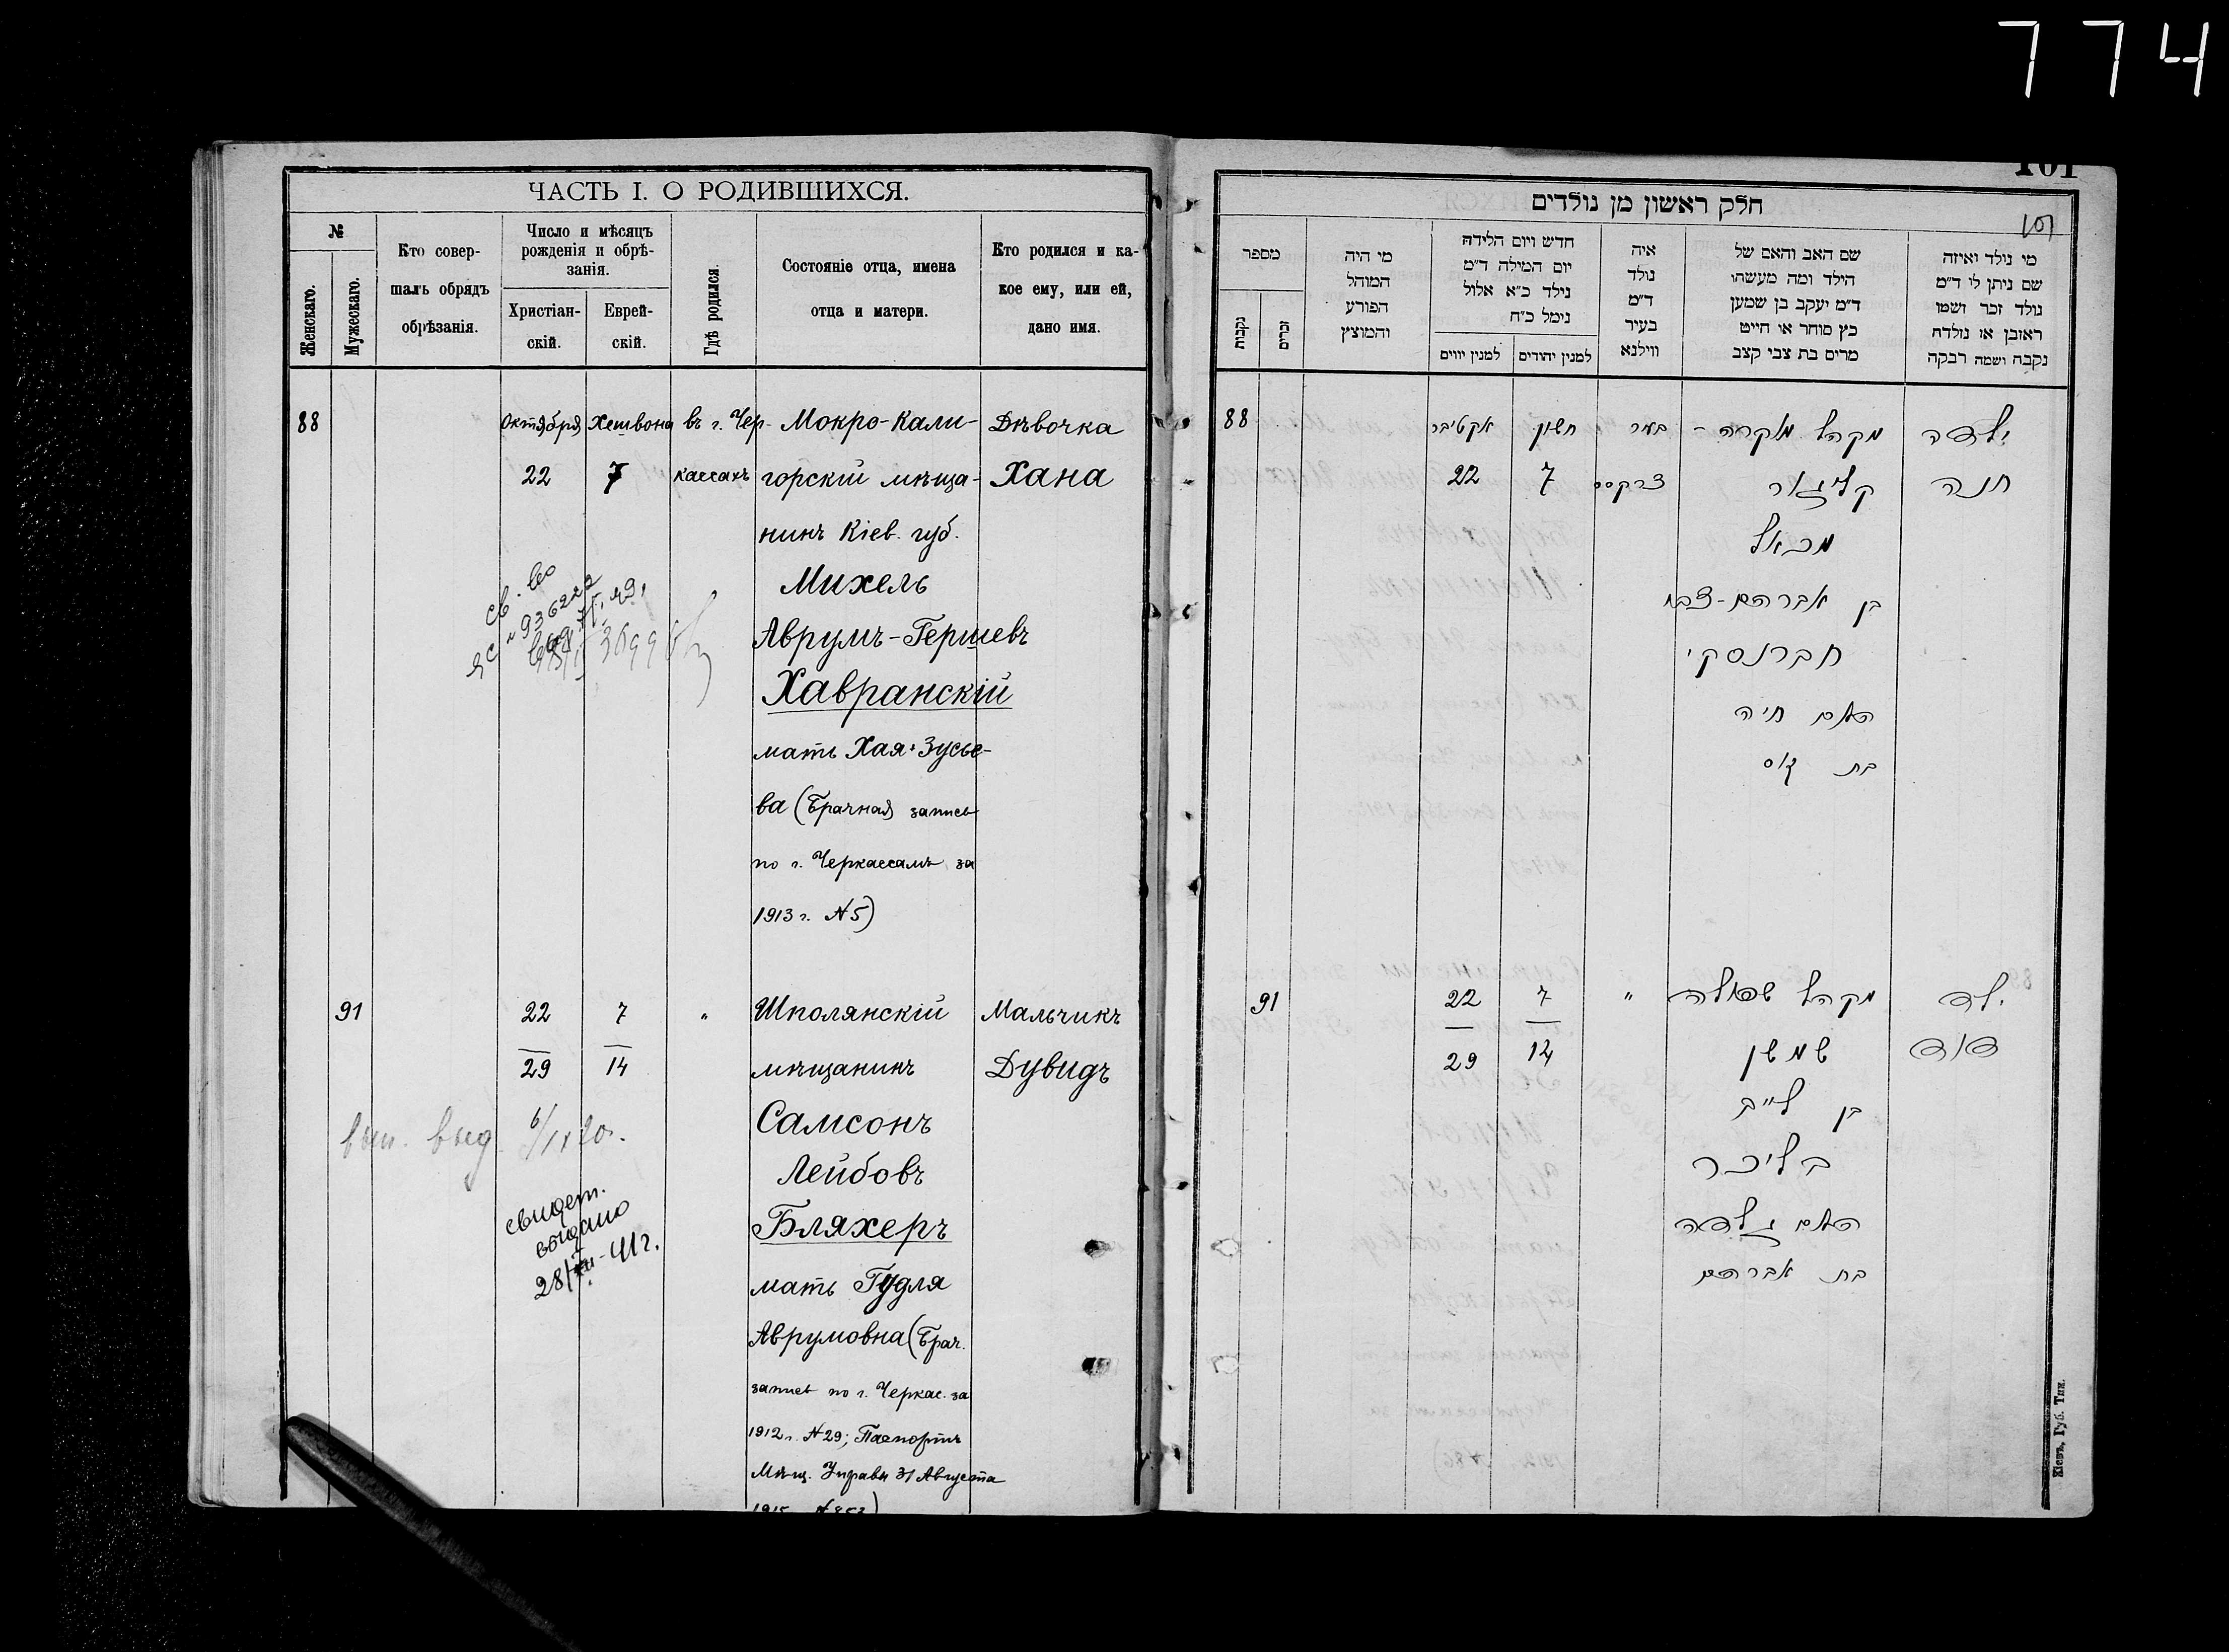 774
ЧАСТЬ I. О РОДИВШИХСЯ.
№
Женскаго.
Мужескаго.
Кто совер-
шалъ обрядъ
обрѣзанія.
Число и мѣсяцъ
рожденія и обрѣ-
занія.
Христіан-
скій.
Еврей-
скій.
Гдѣ родился.
Состояніе отца, имена
отца и матери.
Кто родился и ка-
кое ему, или ей,
дано имя.
88 Октября Хешвона въ г. Чер- Мокро-Кали- Дѣвочка
22 7 кассахъ горскій мѣща- Хана
нинъ Кіев. губ.
Михель
Аврумъ-Гершевъ
Хавранскій
мать Хая Зусье-
ва (Брачная запись
по г. Черкассамъ за
1913 г. №5)
св.
91 22 7 " Шполянскій Мальчикъ
29 14 мѣщанинъ Дувидъ
Самсонъ
Лейбовъ
Бляхеръ
мать Гудля
Аврумовна (Брач.
запись по г. Черкас. за
1912 г. №29; Паспортъ
Мѣщ. Управы 31 Августа
1915
вып. выд. 6/IX 20 г.
свидет.
выдано
28/ -41г.
101
101
חלק ראשון מן נולדים
מספר
נקבות
זכרים
מי היה
המוהל
הפורע
והמוצץ
חדש ויום הלידה
יום המילה ד״מ
נילד כ״א אלול
נימל כ״ח
למנין יווים
למנין יהודים
איה
נולד
ד״מ
בעיר
ווילנא
שם האב והאם של
הילד ומה מעשהו
ד״מ יעקב בן שמען
כץ סוחר או חייט
מרים בת צבי קצב
מי נולד ואיזה
שם ניתן לו ד״מ
נולד זכר ושמו
ראובן או נולדה
נקבה ושמה רבקה
88 אקטיבר חשון בעיר מקהל מאקרה- ילדה
22 7 צרקסס קליגאר חנה
מכאל
בן אברהם-צבי
חברנסקי
האם חיה
בת זוס
91 22 7 " מקהל שפולה ילד
29 14 שמשון דוד
בן לייב
בליכר
האם גולדה
בת אברהם
Кіевъ, Губ. Тип.